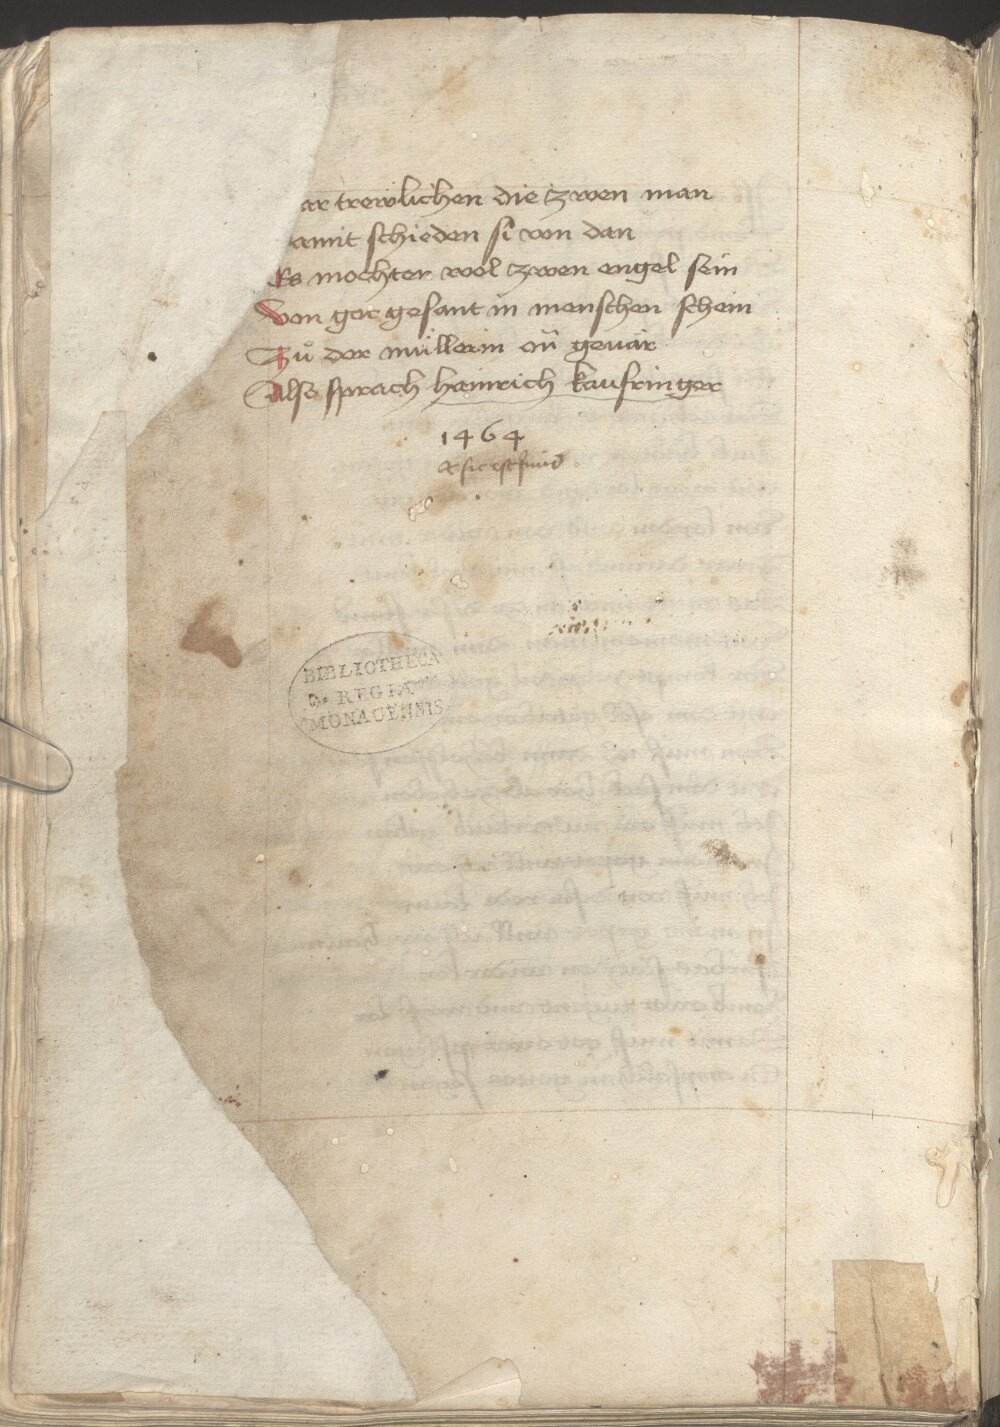 ar trewlichen die zwen man
amit schieden si von dan
Es mochten wol zwen engel sein
Von got gesant in menschen schein
Zuͦ der müllerin oũ geuär
Also sprach hainrich kaufringer
1464
& sic est finis
BIBLIOTHECA
REGIA
MONACENSIS